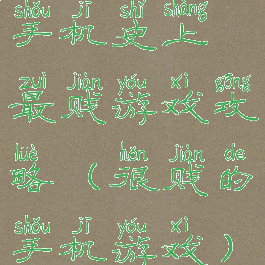 shǒu jī shǐ shàng
手机史上
zuì jiàn yóu xì gōng
最贱游戏攻
lüè hěn jiàn de
略（很贱的
shǒu jī yóu xì
手机游戏）